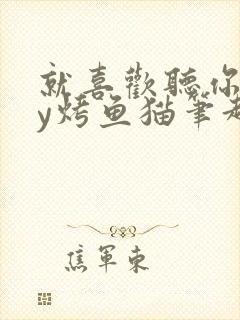 就喜歡聽你
y烤鱼猫筆趣
焦軍東